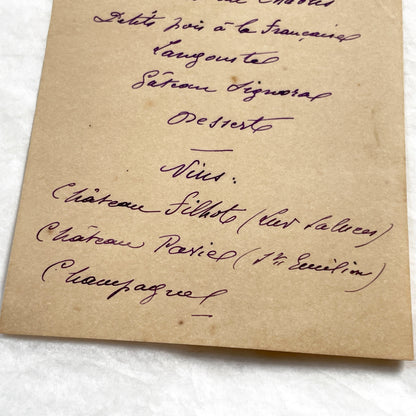 Petits pois à la Française
Langouste
Gâteau Signora
Desserts
Vins :
Château Filhot (Lur Saluces)
Château Pavie (St Emilion)
Champagne